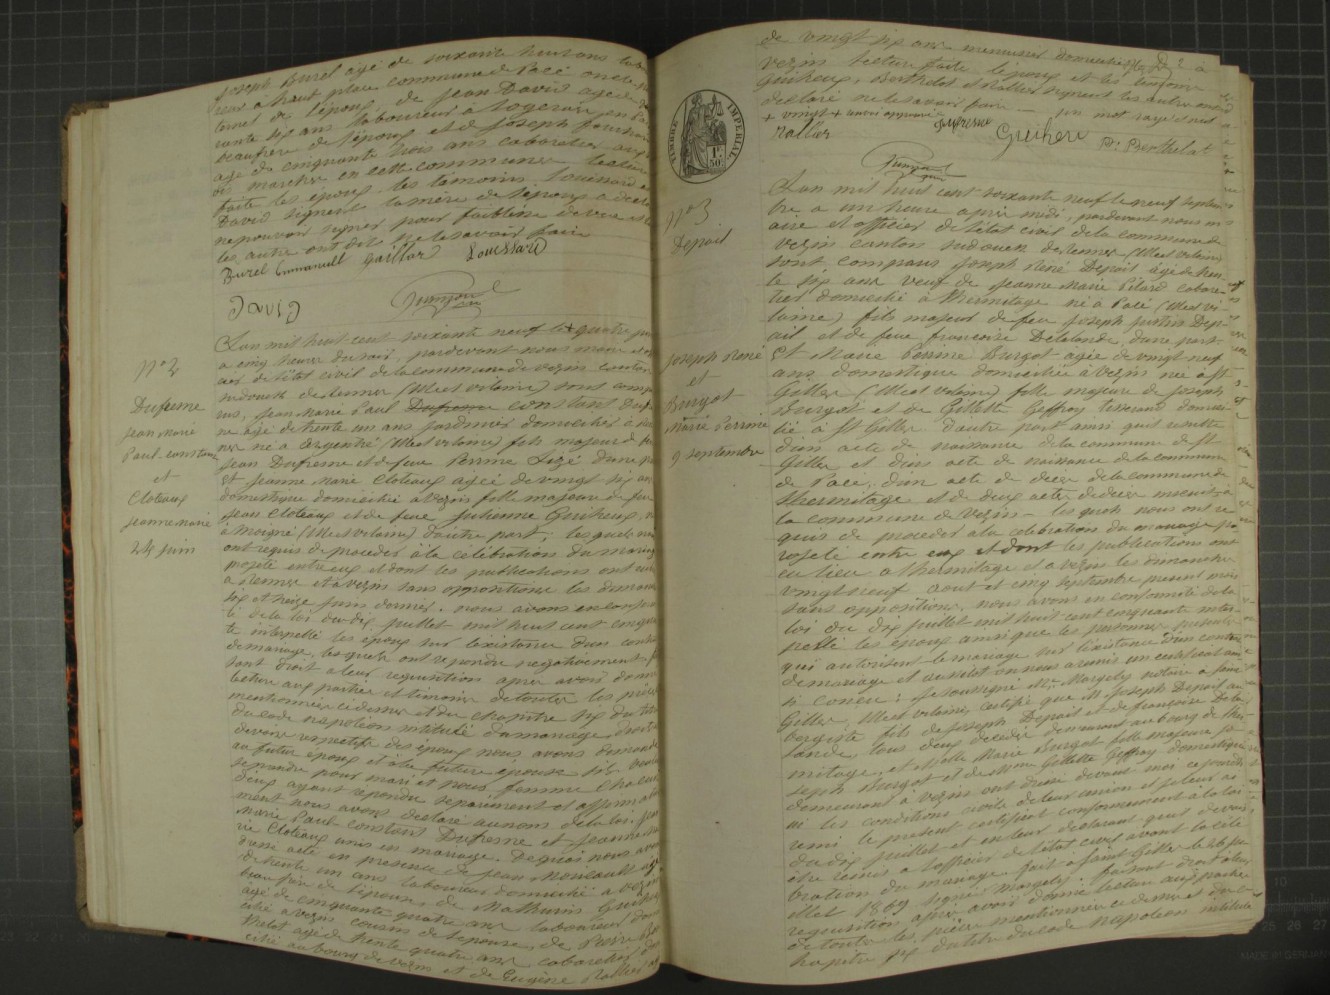 Joseph Burel agé de soixante huit ans
commune de Pacé oncle
de l'époux, de Jean David agé de
cante six ans laboureur à
beaufrere de l'époux et de Joseph
agé de cinquante trois ans cabaretier
en cette commune lecture
faite les époux les témoins Louessard et
David signent la mère de l'époux a déclaré
ne pouvoir signer pour faiblesse de vue et
les autre ont dit ne le savoir faire
Burel Emmanuell Gaillard Louessard
David
n° 2
Dufresne
Jean Marie
Paul constant
et
Cloteaux
Jeanne Marie
24 juin
L'an mil huit cent soixante neuf le + quatre juin
a cinq heures du soir, pardevant nous maire et
cier de l'état civil de la commune de Vezin canton
sudouest de Rennes (Ille et vilaine) sont compa
rus, Jean Marie Paul Dufresne constant Dufres
ne agé de trente un ans jardinier domicilié à Ren
nes né à Argentré (Ille et vilaine) fils majeur de
Jean Dufresne et de feue Perrine Lozé d'une part
Et Jeanne Marie Cloteaux agée de vingt six ans
domestique domiciliée à Vezin fille majeure de feu
Jean Cloteaux et de feue Julienne Guiheux, née
à Moigné (Ille et vilaine) d'autre part; les quels nous
ont requis de proceder à la célébration du mariage
projeté entre eux et dont les publications ont eu
a Rennes et à Vezin sans oppositions les dimanches
six et treize juin dernier. nous avons en conformi
té de la loi du dix juillet mil huit cent cinquan
te interpellé les époux sur l'existence d'un contrat
de mariage, lesquels ont repondu negativement
sant droit a leur requisition apres avoir donné
lecture aux parties et témoins de toutes les pièces
mentionnées ci dessus et du chapitre six du titre
du code napoléon intitulé du mariage, droits
devoirs respectifs des époux nous avons demandé
au futur époux et à la future épouse s'ils veulent
se prendre pour mari et pour femme chacun
d'eux ayant repondu separement et affirmative
ment nous avons declaré au nom de la loi. Jean
Marie Paul constant Dufresne et Jeanne Ma
rie Cloteaux unis en mariage. De quoi nous avons
dressé acte en presence de Jean Noueault agé
de trente un ans laboureur domicilié à Vezin
beau frère de l'épouse, de Mathurin Guiheux
agé de cinquante quatre ans laboureur domi
cilié à Vezin cousin de l'épouse, de Pierre Ber
thelot agé de trente quatre ans cabaretier domi
cilié au bourg de Vezin et de Eugène Rallier agé
de vingt six ans menuisier domicilié
Vezin lecture faite l'époux et les témoins
Guiheux, Berthelot et Rallier signent les autre ont
déclaré ne le savoir faire un mot rayé est nul
+ vingt + avons approuvé
Rallier Dufresne Guiheu P. Berthelot
TIMBRE IMPERIAL
1F.
50c
n° 3
Depail
Joseph René
et
Burgot
Marie Perrine
9 septembre
L'an mil huit cent soixante neuf le neuf septem
bre a un heure apres midi, pardevant nous m
aire et officier de l'état civil de la commune de
Vezin canton sudouest de Rennes (Ille et vilaine)
sont comparus Joseph René Depail agé de tren
te six ans veuf de Jeanne Marie Pilard cabare
tier domicilié à l'hermitage né à Pacé (Ille et vi
laine) fils majeur de feu Joseph Justin Dep
ail et de feue françoise Delalande, d'une part
Et Marie Perrine Burgot agée de vingt neuf
ans domestique domiciliée à Vezin née à St
Gilles (Ille et vilaine) fille majeure de Joseph
Burgot et de Gillette Geffroy tisserand domici
lié à St Gilles d'autre part ainsi qu'il resulte
d'un acte de naissance de la commune de St
Gilles et d'un acte de naissance de la commune
de Pacé, d'un acte de deces de la commune de
l'hermitage et de deux actes de deces inscrits à
la commune de Vezin - les quels nous ont re
quis de proceder a la celebration du mariage pro
jeté entre eux et dont les publications ont
eu lieu a l'hermitage et a Vezin les dimanches
vingt neuf aout et cinq septembre present mois
sans oppositions, nous avons en conformité de la
loi du dix juillet mil huit cent cinquante inter
pellé les époux ainsi que les personnes presentes
qui autorisent le mariage sur l'existence d'un contrat
de mariage et aussitot on nous a remis un certificat ain
si concu: Je soussigné Me Margely notaire a saint
Gilles, Ille et vilaine, certifie que M Joseph Depail au
bergiste fils de Joseph Depail et de françoise Dela
lande, tous deux décédés demeurant au bourg de l'her
mitage, et Melle Marie Burgot fille majeure de Jo
seph Burgot et de Mme Gillette Geffroy domestique
demeurant a Vezin ont dressé devant moi ce jourd'h
ui les conditions civile de leur union et je leur ai
remi le present certificat conformement à la loi
du dix juillet et en leur declarant qu'il devrait
être remis a l'officier de l'état civil avant la célé
bration du mariage. fait a saint Gilles le 26 ju
illet 1869 signé Margely: faisant droit a leur
requisition apres avoir donné lecture aux parties
de toutes les pièces mentionnées ci dessus et du c
hapitre six du titre du code Napoléon intitulé